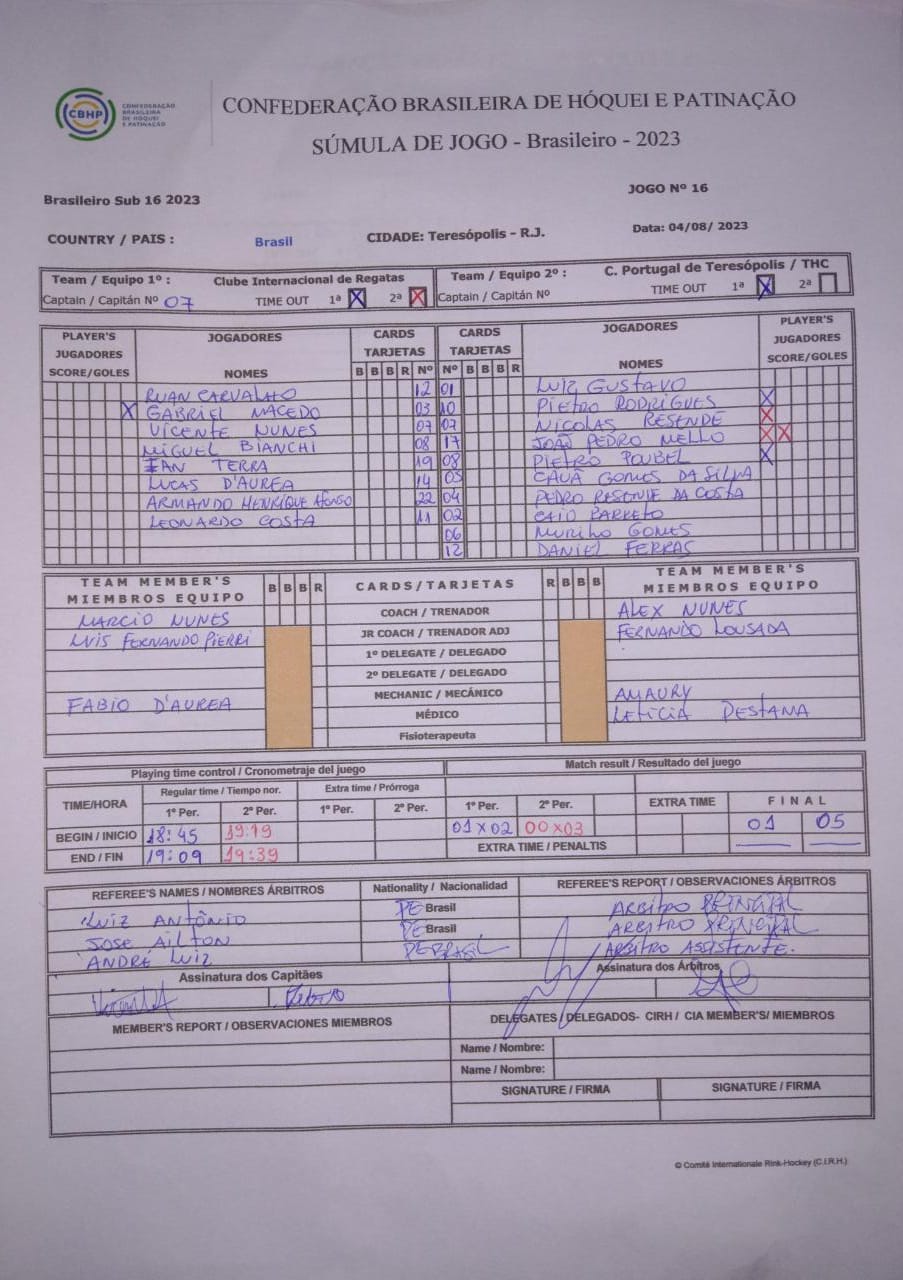 CBHP CONFEDERAÇÃO BRASILEIRA DE HÓQUEI E PATINAÇÃO
CONFEDERAÇÃO BRASILEIRA DE HÓQUEI E PATINAÇÃO
SÚMULA DE JOGO - Brasileiro - 2023
JOGO Nº 16
Brasileiro Sub 16 2023
COUNTRY / PAIS : Brasil CIDADE: Teresópolis - R.J. Data: 04/08/ 2023
Team / Equipo 1º : Clube Internacional de Regatas Team / Equipo 2º : C. Portugal de Teresópolis / THC
Captain / Capitán Nº 07 TIME OUT 1ª X 2ª X Captain / Capitán Nº TIME OUT 1ª X 2ª
PLAYER'S JUGADORES SCORE/GOLES JOGADORES NOMES CARDS TARJETAS CARDS TARJETAS JOGADORES NOMES PLAYER'S JUGADORES SCORE/GOLES
B B B R Nº Nº B B B R
RUAN CARVALHO 12 01 LUIZ GUSTAVO
X GABRIEL MACEDO 03 10 PIETRO RODRIGUES X
VICENTE NUNES 07 07 NICOLAS RESENDE X
MIGUEL BIANCHI 08 17 JOÃO PEDRO MELLO X X
IAN TERRA 19 08 PIETRO POUBEL X
LUCAS D'AUREA 14 05 CAUÃ GOMES DA SILVA
ARMANDO HENRIQUE AFONSO 22 04 PEDRO RESENDE DA COSTA
LEONARDO COSTA 11 02 CAIO BARRETO
06 MURILHO GOMES
12 DANIEL FERRAS
TEAM MEMBER'S MIEMBROS EQUIPO B B B R CARDS/TARJETAS R B B B TEAM MEMBER'S MIEMBROS EQUIPO
MARCIO NUNES COACH / TRENADOR ALEX NUNES
LUIS FERNANDO PIERRI JR COACH / TRENADOR ADJ FERNANDO LOUSADA
1º DELEGATE / DELEGADO
2º DELEGATE / DELEGADO
FABIO D'AUREA MECHANIC / MECÁNICO AMAURY
MÉDICO LETICIA
Fisioterapeuta
Playing time control / Cronometraje del juego Match result / Resultado del juego
TIME/HORA Regular time / Tiempo nor. Extra time / Prórroga
1º Per. 2º Per. 1º Per. 2º Per. 1º Per. 2º Per. EXTRA TIME FINAL
BEGIN / INICIO 18:45 19:19 01 x 02 00 x 03 01 05
END / FIN 19:09 19:39 EXTRA TIME / PENALTIS
REFEREE'S NAMES / NOMBRES ÁRBITROS Nationality / Nacionalidad REFEREE'S REPORT / OBSERVACIONES ÁRBITROS
LUIZ ANTÔNIO PE Brasil ARBITRO PRINCIPAL
JOSE AILTON PE Brasil ARBITRO PRINCIPAL
ANDRÉ LUIZ PE BRASIL ARBITRO ASSISTENTE.
Assinatura dos Capitães Assinatura dos Árbitros
MEMBER'S REPORT / OBSERVACIONES MIEMBROS DELEGATES / DELEGADOS- CIRH / CIA MEMBER'S/ MIEMBROS
Name / Nombre:
Name / Nombre:
SIGNATURE / FIRMA SIGNATURE / FIRMA
© Comité Internationale Rink-Hockey (C.I.R.H.)